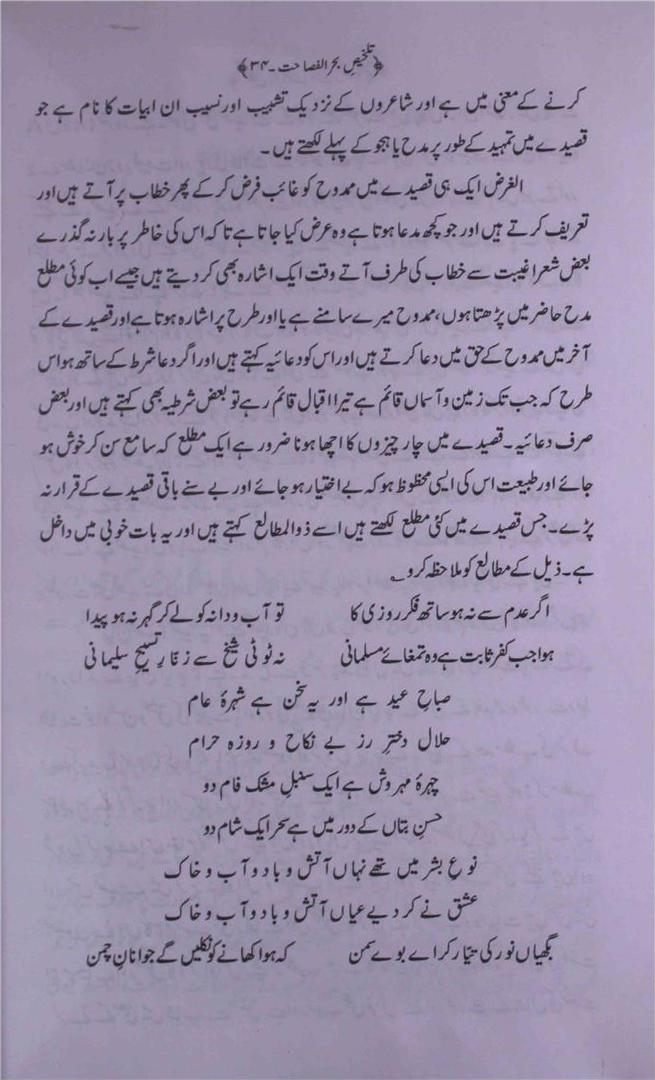 ﴿تلخیصِ بحر الفصاحت۔۳۴﴾
کرنے کے معنی میں ہے اور شاعروں کے نزدیک تشبیب اور نسیب ان ابیات کا نام ہے جو
قصیدے میں تمہید کے طور پر مدح یا ہجو کے پہلے لکھتے ہیں۔
الغرض ایک ہی قصیدے میں ممدوح کو غائب فرض کر کے پھر خطاب پر آتے ہیں اور
تعریف کرتے ہیں اور جو کچھ مدعا ہوتا ہے وہ عرض کیا جاتا ہے تاکہ اس کی خاطر پر بار نہ گذرے
بعض شعرا غیبت سے خطاب کی طرف آتے وقت ایک اشارہ بھی کر دیتے ہیں جیسے اب کوئی مطلع
مدح حاضر میں پڑھتا ہوں، ممدوح میرے سامنے ہے یا اور طرح پر اشارہ ہوتا ہے اور قصیدے کے
آخر میں ممدوح کے حق میں دعا کرتے ہیں اور اس کو دعائیہ کہتے ہیں اور اگر دعا شرط کے ساتھ ہو اس
طرح کہ جب تک زمین و آسماں قائم ہے تیرا اقبال قائم رہے تو بعض شرطیہ بھی کہتے ہیں اور بعض
صرف دعائیہ۔ قصیدے میں چار چیزوں کا اچھا ہونا ضرور ہے ایک مطلع کہ سامع سن کر خوش ہو
جائے اور طبیعت اس کی ایسی محظوظ ہو کہ بے اختیار ہو جائے اور بے سنے باقی قصیدے کے قرار نہ
پڑے۔ جس قصیدے میں کئی مطلع لکھتے ہیں اسے ذوالمطالع کہتے ہیں اور یہ بات خوبی میں داخل
ہے۔ ذیل کے مطالع کو ملاحظہ کرو ؎
اگر عدم سے نہ ہو ساتھ فکر روزی کا تو آب و دانہ کو لے کر گہر نہ ہو پیدا
ہوا جب کفر ثابت ہے وہ تمغائے مسلمانی نہ ٹوٹی شیخ سے زنّارِ تسبیحِ سلیمانی
صباحِ عید ہے اور یہ سخن ہے شہرۂ عام
حلال دخترِ رز بے نکاح و روزہ حرام
چہرۂ مہروش ہے ایک سنبلِ مشک فام دو
حسنِ بتاں کے دور میں ہے سحر ایک شام دو
نوعِ بشر میں تھے نہاں آتش و باد و آب و خاک
عشق نے کر دیے عیاں آتش و باد و آب و خاک
بگھیاں نور کی تیّار کر اے بوے سمن کہ ہوا کھانے کو نکلیں گے جوانانِ چمن